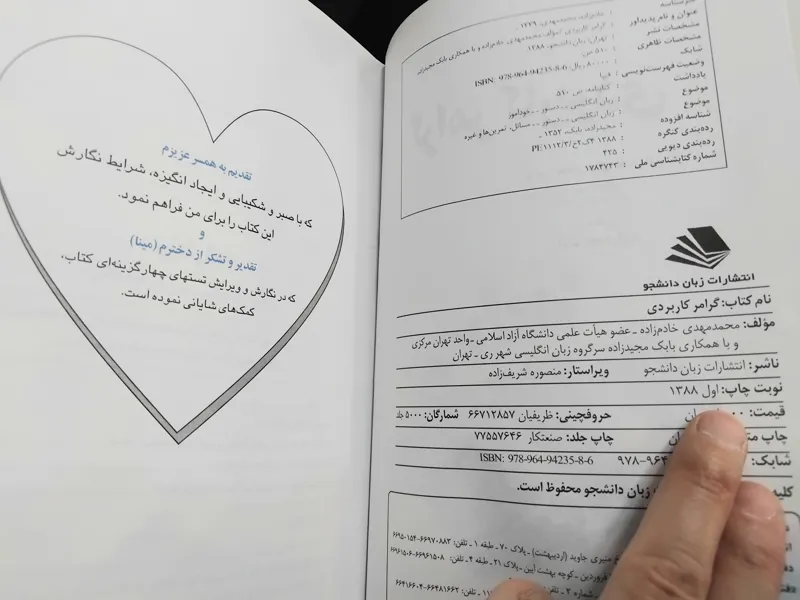 تقدیم به همسر عزیزم
که با صبر و شکیبایی و ایجاد انگیزه، شرایط نگارش
این کتاب را برای من فراهم نمود.
و
تقدیر و تشکر از دخترم (مینا)
که در نگارش و ویرایش تستهای چهارگزینه‌ای کتاب،
کمک‌های شایانی نموده است.
سرشناسه : خادم‌زاده، محمدمهدی، ۱۳۲۹.
عنوان و نام پدیدآور : گرامر کاربردی / مؤلف محمدمهدی خادم‌زاده و با همکاری بابک مجیدزاده.
مشخصات نشر : تهران: زبان دانشجو، ۱۳۸۸.
مشخصات ظاهری : ۵۱۰ ص.
شابک : ۸۰۰۰۰ ریال: ISBN: 978-964-94235-8-6
وضعیت فهرست‌نویسی : فیپا
یادداشت : کتابنامه: ص. ۵۱۰
موضوع : زبان انگلیسی -- دستور -- خودآموز
موضوع : زبان انگلیسی -- دستور -- مسائل، تمرین‌ها و غیره
شناسه افزوده : مجیدزاده، بابک، ۱۳۵۲ -
رده‌بندی کنگره : ۱۳۸۸ ۴گ۲خ/PE۱۱۱۲/۳
رده‌بندی دیویی : ۴۲۵
شماره کتابشناسی ملی : ۱۷۸۴۷۴۳
انتشارات زبان دانشجو
نام کتاب: گرامر کاربردی
مؤلف: محمدمهدی خادم‌زاده ـ عضو هیأت علمی دانشگاه آزاد اسلامی ـ واحد تهران مرکزی
و با همکاری بابک مجیدزاده سرگروه زبان انگلیسی شهر ری ـ تهران
ناشر: انتشارات زبان دانشجو ویراستار: منصوره شریف‌زاده
نوبت چاپ: اول ۱۳۸۸
قیمت: حروفچینی: ظریفیان ۶۶۷۱۲۸۵۷ شمارگان: ۵۰۰۰ جلد
چاپ چاپ جلد: صنعتکار ۷۷۵۵۷۶۴۶
شابک: ۹۷۸-۹۶۴ ISBN: 978-964-94235-8-6
زبان دانشجو محفوظ است.
منیری جاوید (اردیبهشت) ـ پلاک ۷۰ ـ طبقه ۱ ـ تلفن: ۶۶۹۷۰۸۸۳-۶۶۹۵۰۱۵۴
فروردین ـ کوچه بهشت آیین ـ پلاک ۲۱ ـ طبقه ۴ ـ تلفن: ۶۶۹۶۱۵۰۸-۶۶۹۶۱۵۰۶
شماره ۲ ـ تلفن: ۶۶۴۸۱۶۶۲-۶۶۴۱۶۶۰۴